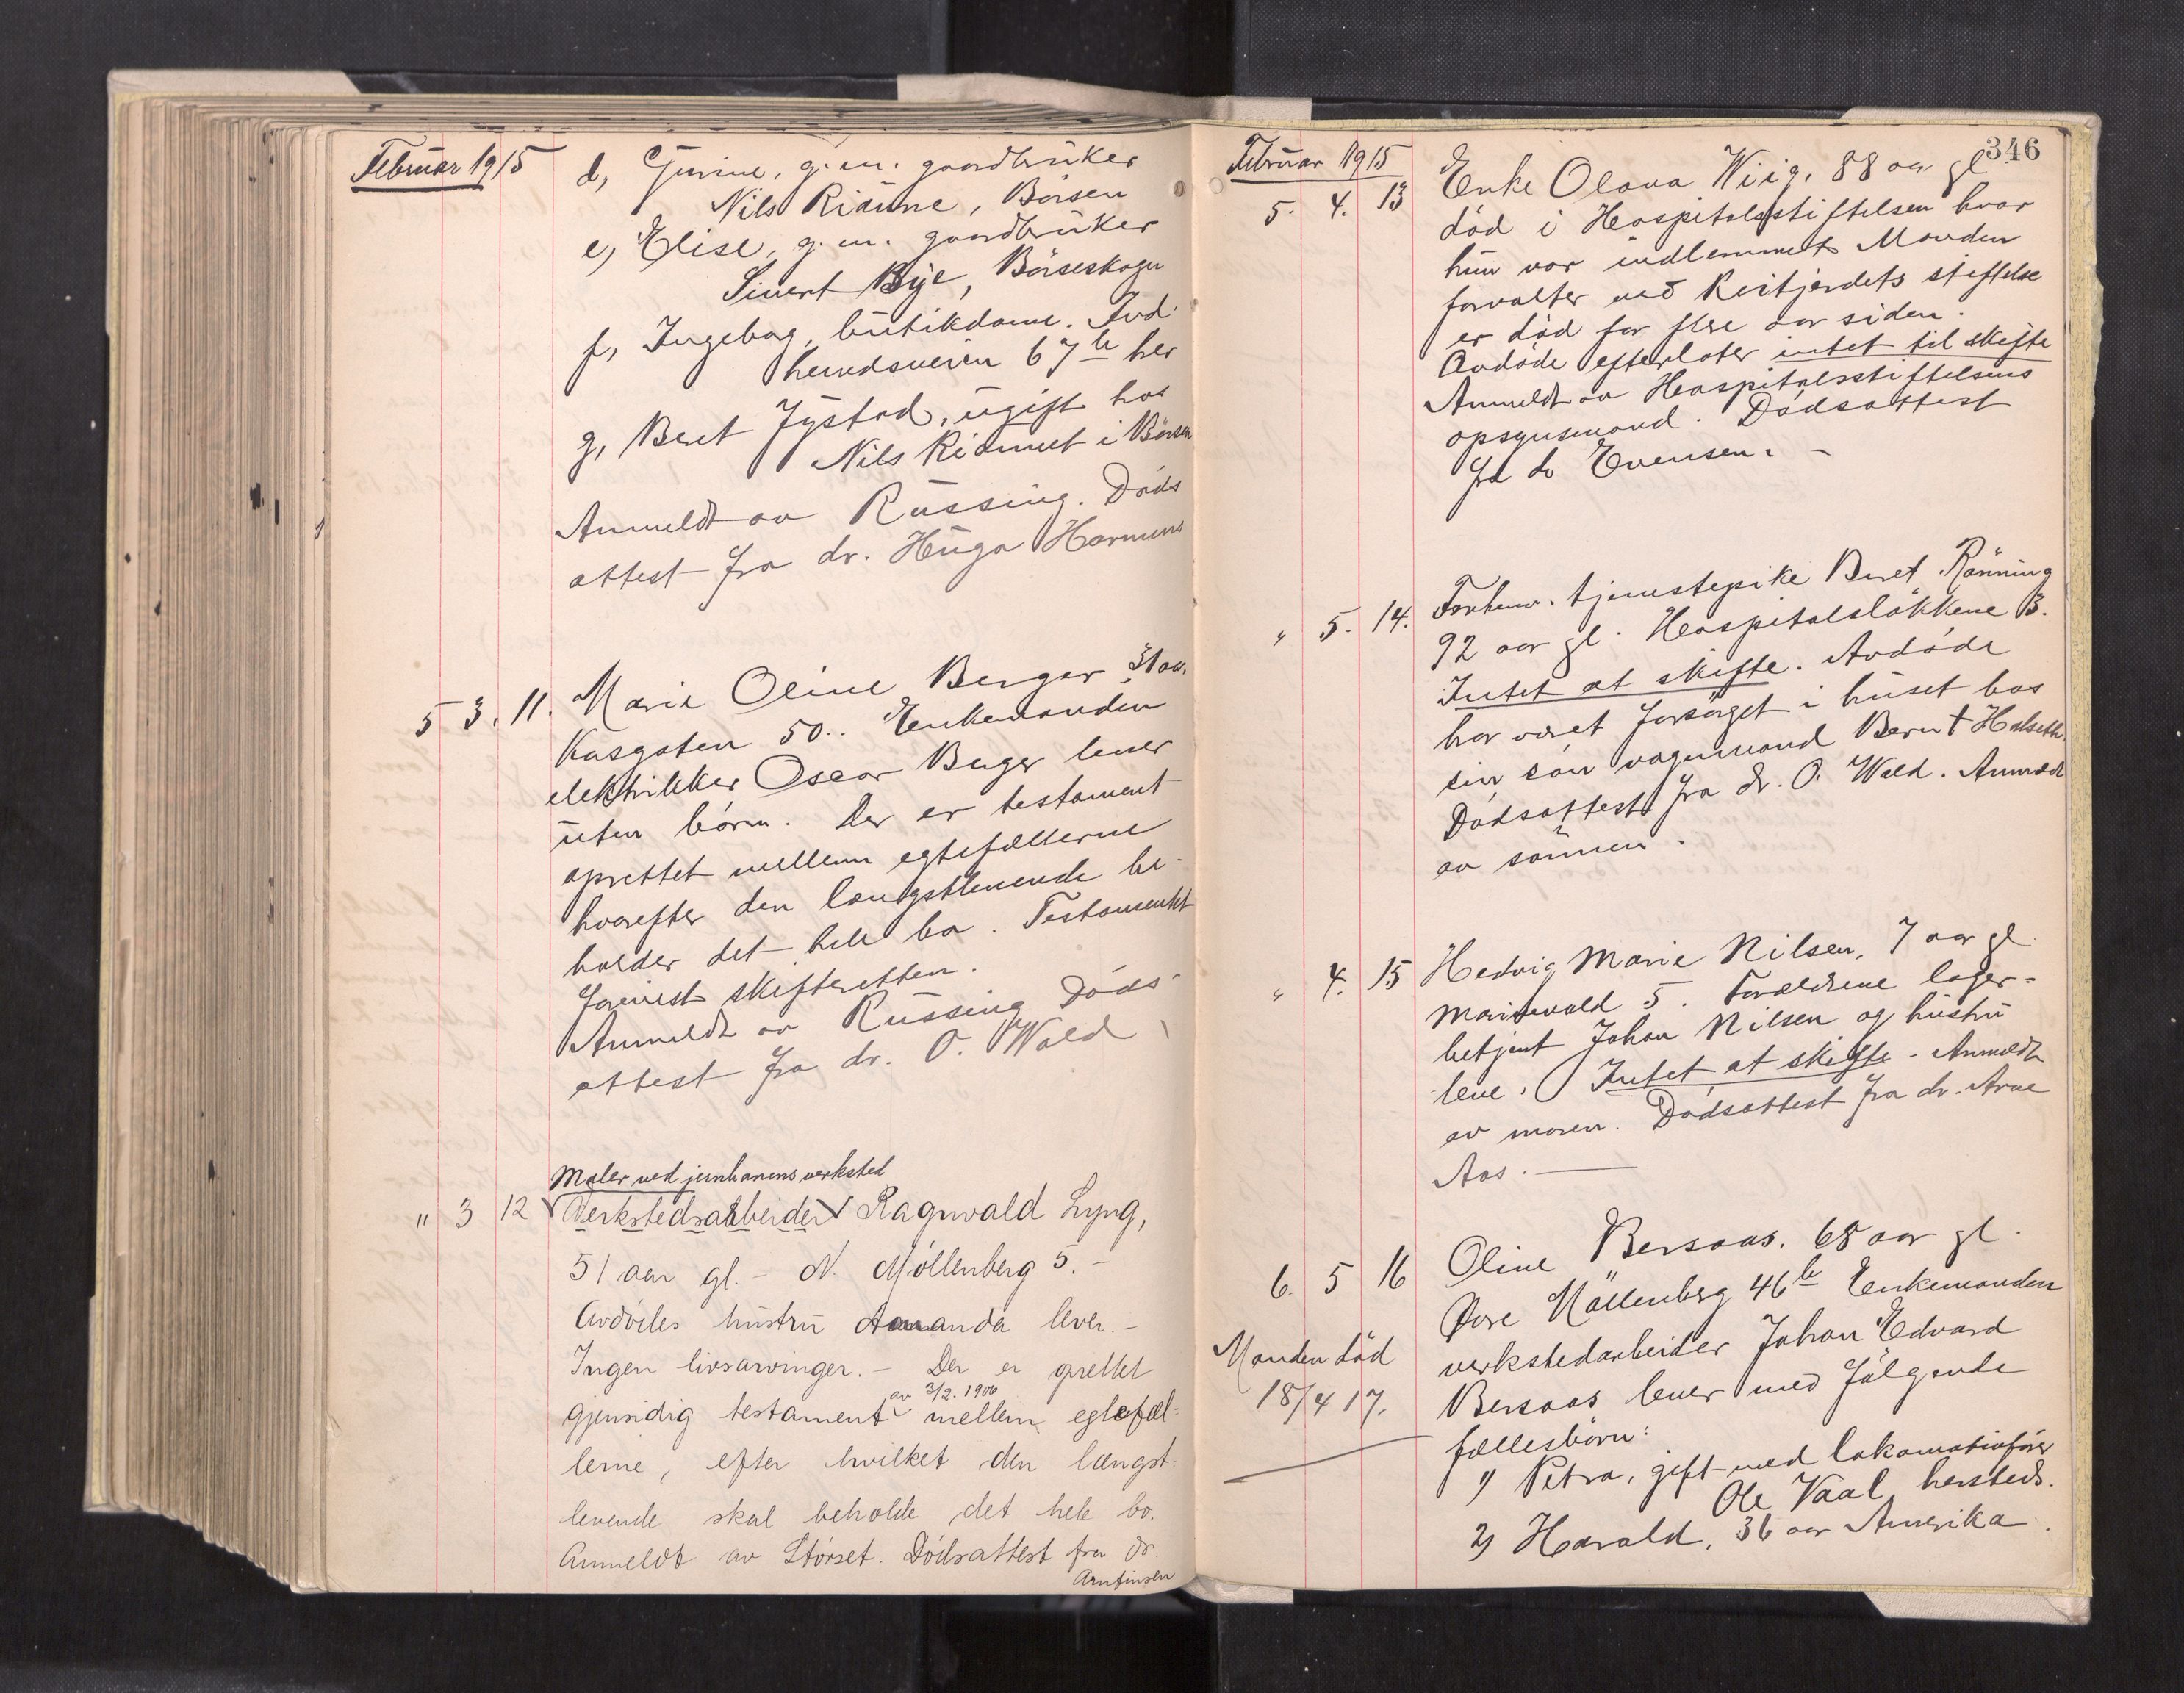 Februar 1915
d, Gurine, g. m. gaardbruker
Nils Rianne, Børsen
e, Elise, g. m. gaardbruker
Sivert Bye, Børseskogn
f, Ingebog, butikdame. Ind-
herredsveien 67 b her
g, Beret Jystad, ugift hos
Nils Riannet i Børsen
Anmeldt av Russing. Døds
attest fra dr. Hugo Harmens
5 3. 11. Marie Oline Berger 31 aar,
50.. Enkemanden
elektrikker Oscar Berger lever
uten børn. Der er testament
oprettet mellem egtefællerne
hvorefter den længstlevende be-
holder det hele bo. Testamentet
forevist skifteretten.
Anmeldt av Russing Døds-
attest fra dr. O. Wald
Maler ved jernbanens verksted
" 3 12 Verkstedsarbeider Ragnvald Lyng,
51 aar gl. - N. Møllenberg 5. -
Avdødes hustru Amanda lever. -
Ingen livsarvinger. - Der er oprettet
av 3/2. 1906
gjensidig testament mellem egtefæl-
lerne, efter hvilket den længst-
levende skal beholde det hele bo.
Anmeldt av Størset. Dødsattest fra dr.
Arnfinsen
346
Februar 1915
5. 4. 13 Enke Olava Wiig, 88 aar gl
død i Hospitalsstiftelsen hvor
hun var indlemmet Manden
forvalter ved Reitgjerdets stiftelse
er død for flere aar siden.
Avdøde efterlater intet til skifte
Anmeldt av Hospitalsstiftelsens
opsynsmand. Dødsattest
fra dr Evensen. -
" 5. 14. Forhenv. tjenestepike Beret Rønning
92 aar gl. Hospitalsløkkene 3.
Intet at skifte. Avdøde
har været forsørget i huset hos
sin søn vognmand Bernt Halseth.
Dødsattest fra dr. O. Wald. Anmeldt
av sønnen.
" 4. 15 Hedvig Marie Nilsen, 7 aar gl
Marienvald 5. Forældrene lager-
betjent Johan Nilsen og hustru
leve. Intet at skifte - Anmeldt
av moren. Dødsattest fra dr. Arne
Aas. -
6. 5 16 Oline Bersaas. 68 aar gl.
Øvre Møllenberg 46 b Enkemanden
verkstedarbeider Johan Edvard
Bersaas lever med følgende
fællesbørn:
Manden død
18/4 17.
1) Petra, gift med lokomotivfører
Ole Vaal, hersteds.
2) Harald, 36 aar Amerika.